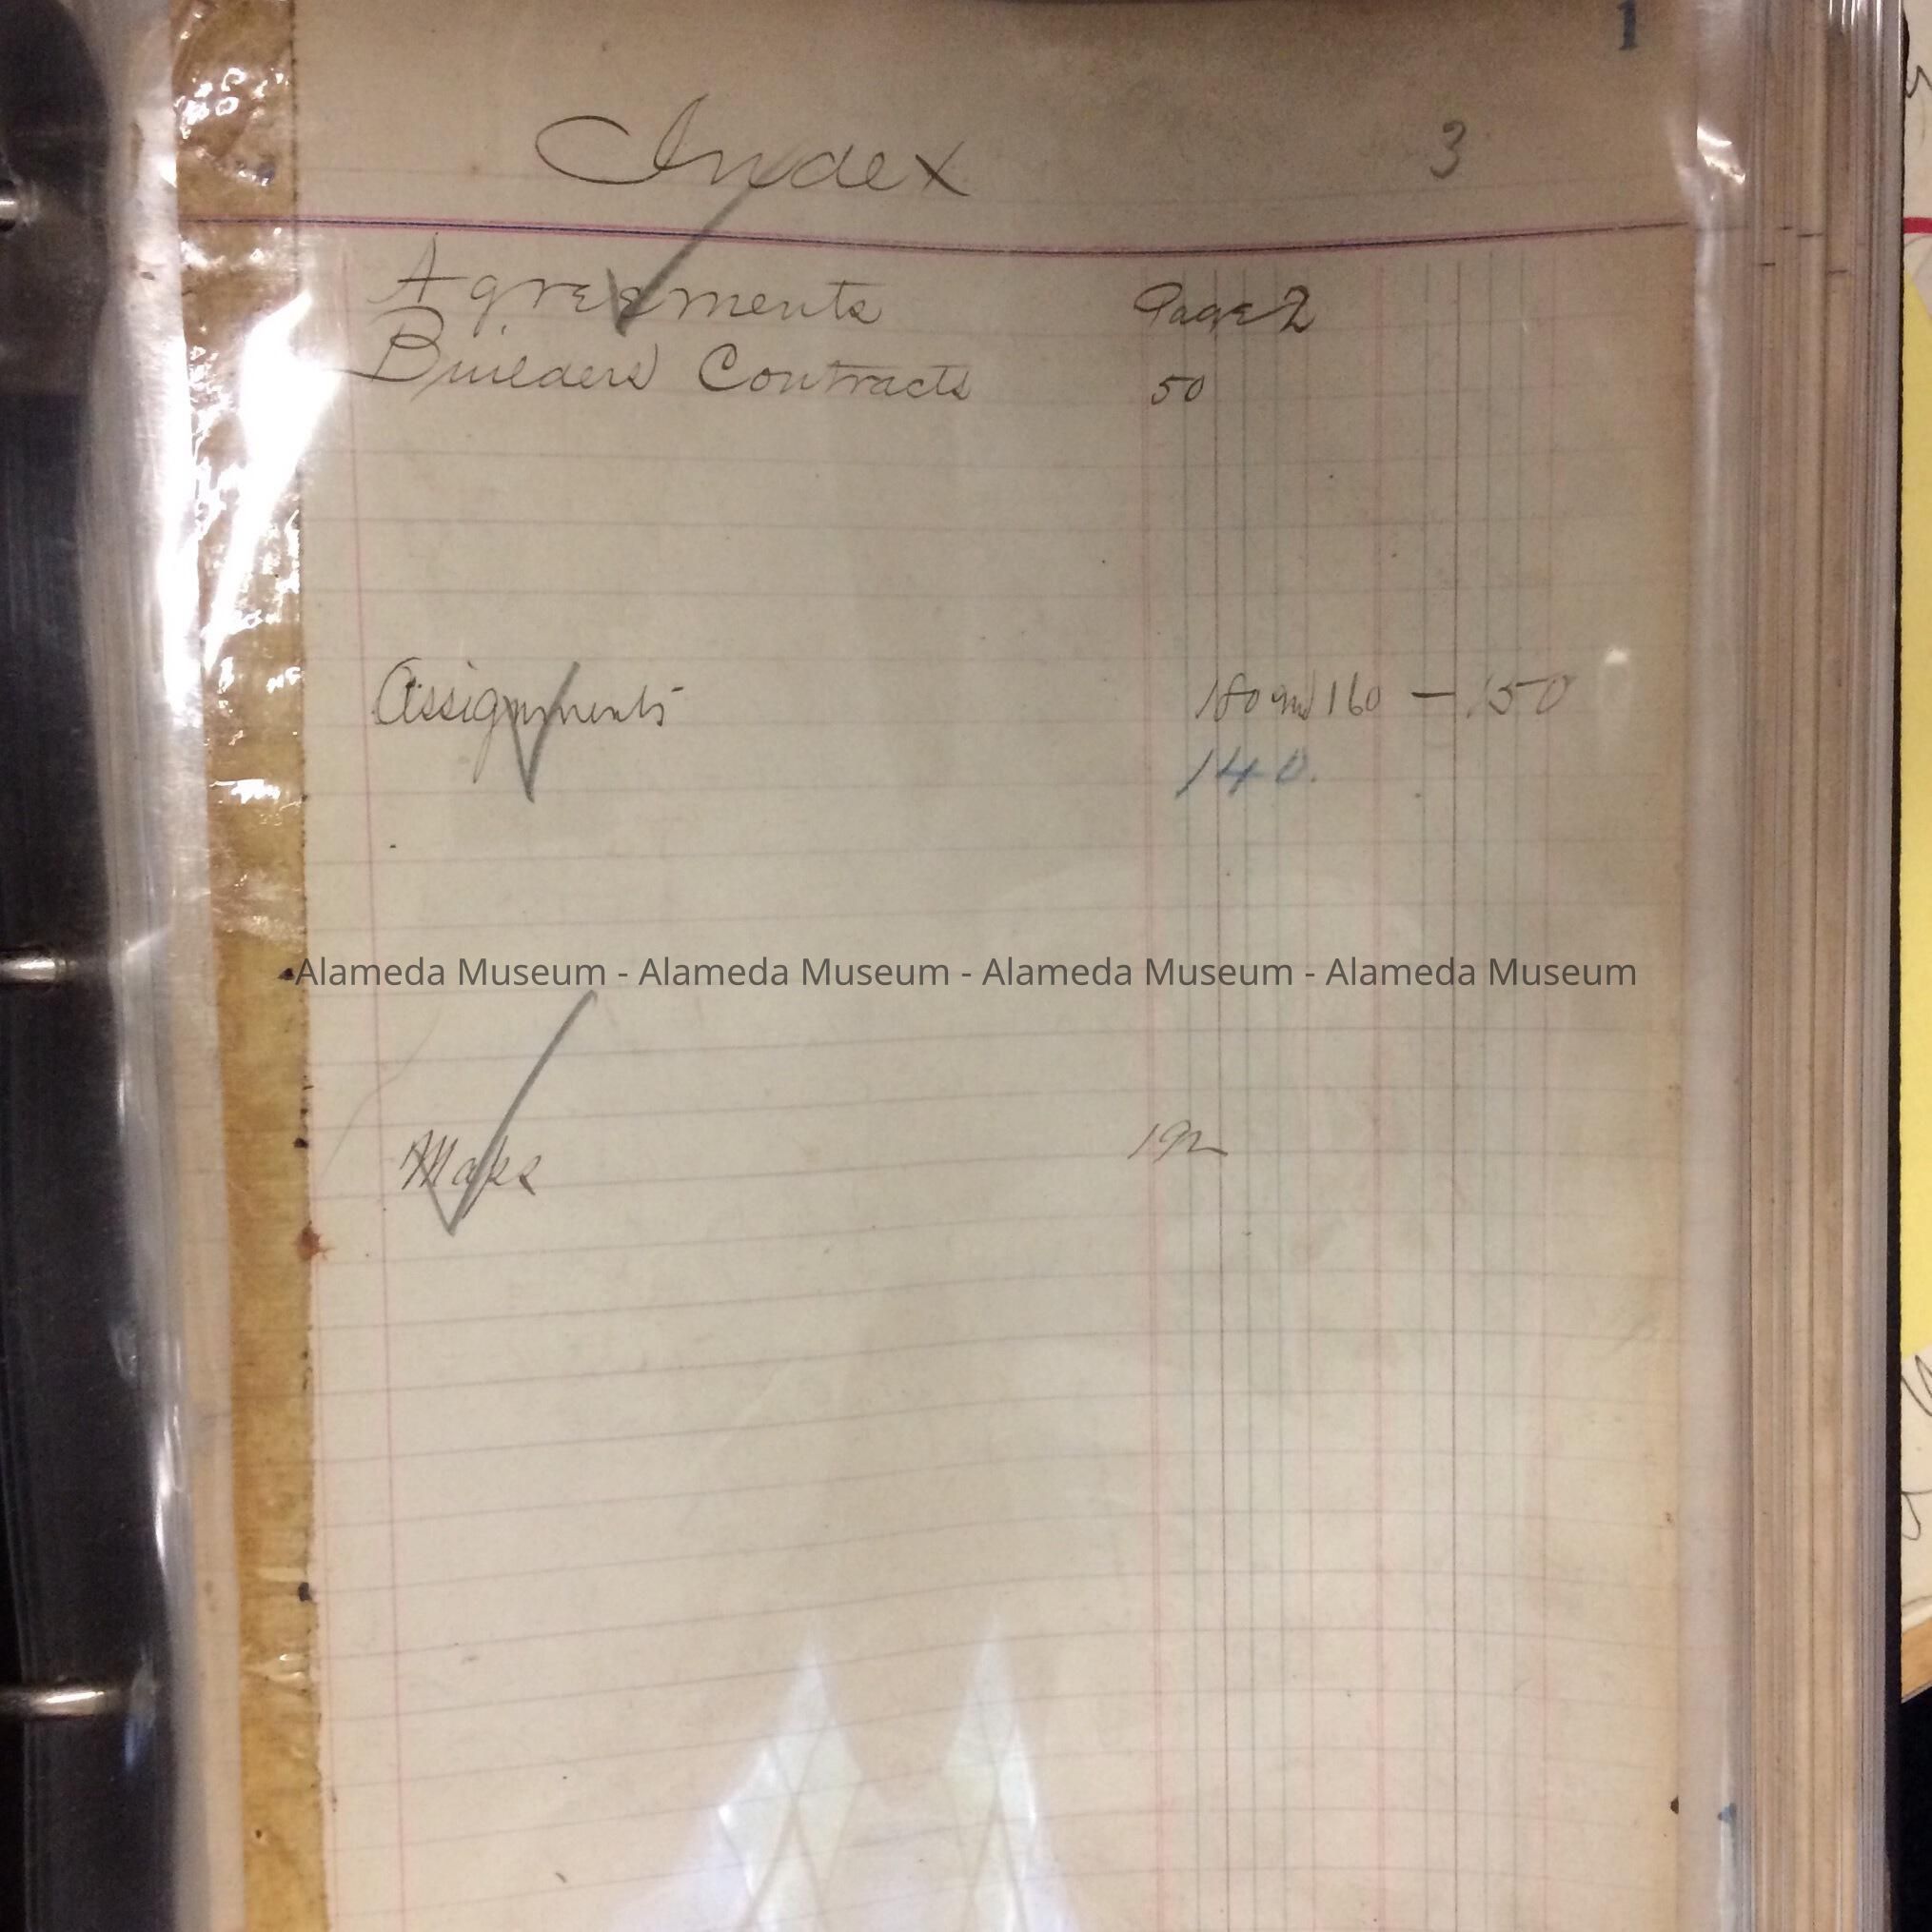 1
Index 3
Agreements Page 2
Builders Contracts 50
Assignments 180 and 160 — 150
140.
Alameda Museum - Alameda Museum - Alameda Museum - Alameda Museum
Maps 192